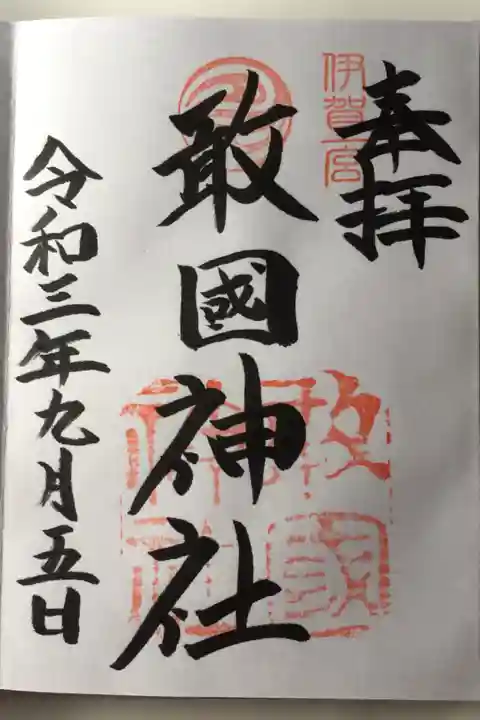 奉拝
伊賀一宮
敢國神社
令和三年九月五日